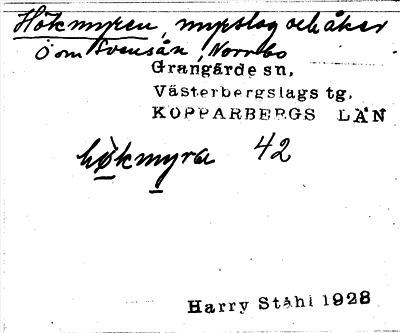 Hökmyren, myrslog och åker
Ö om Svensån, Norrbo
Grangärde sn,
Västerbergslags tg.
KOPPARBERGS LÄN
hökmyra 42
Harry Ståhl 1928